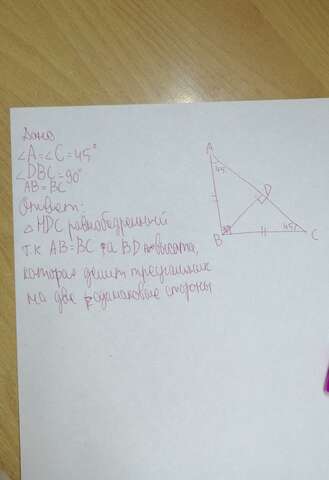 Дано
∠A=∠C=45°
∠DBC=90°
AB=BC
Ответ:
△ HDC равнобедренный
т.к AB=BC, а BD высота,
которая делит треугольник
на две одинаковые стороны
A
45°
D
B
90°
45°
C